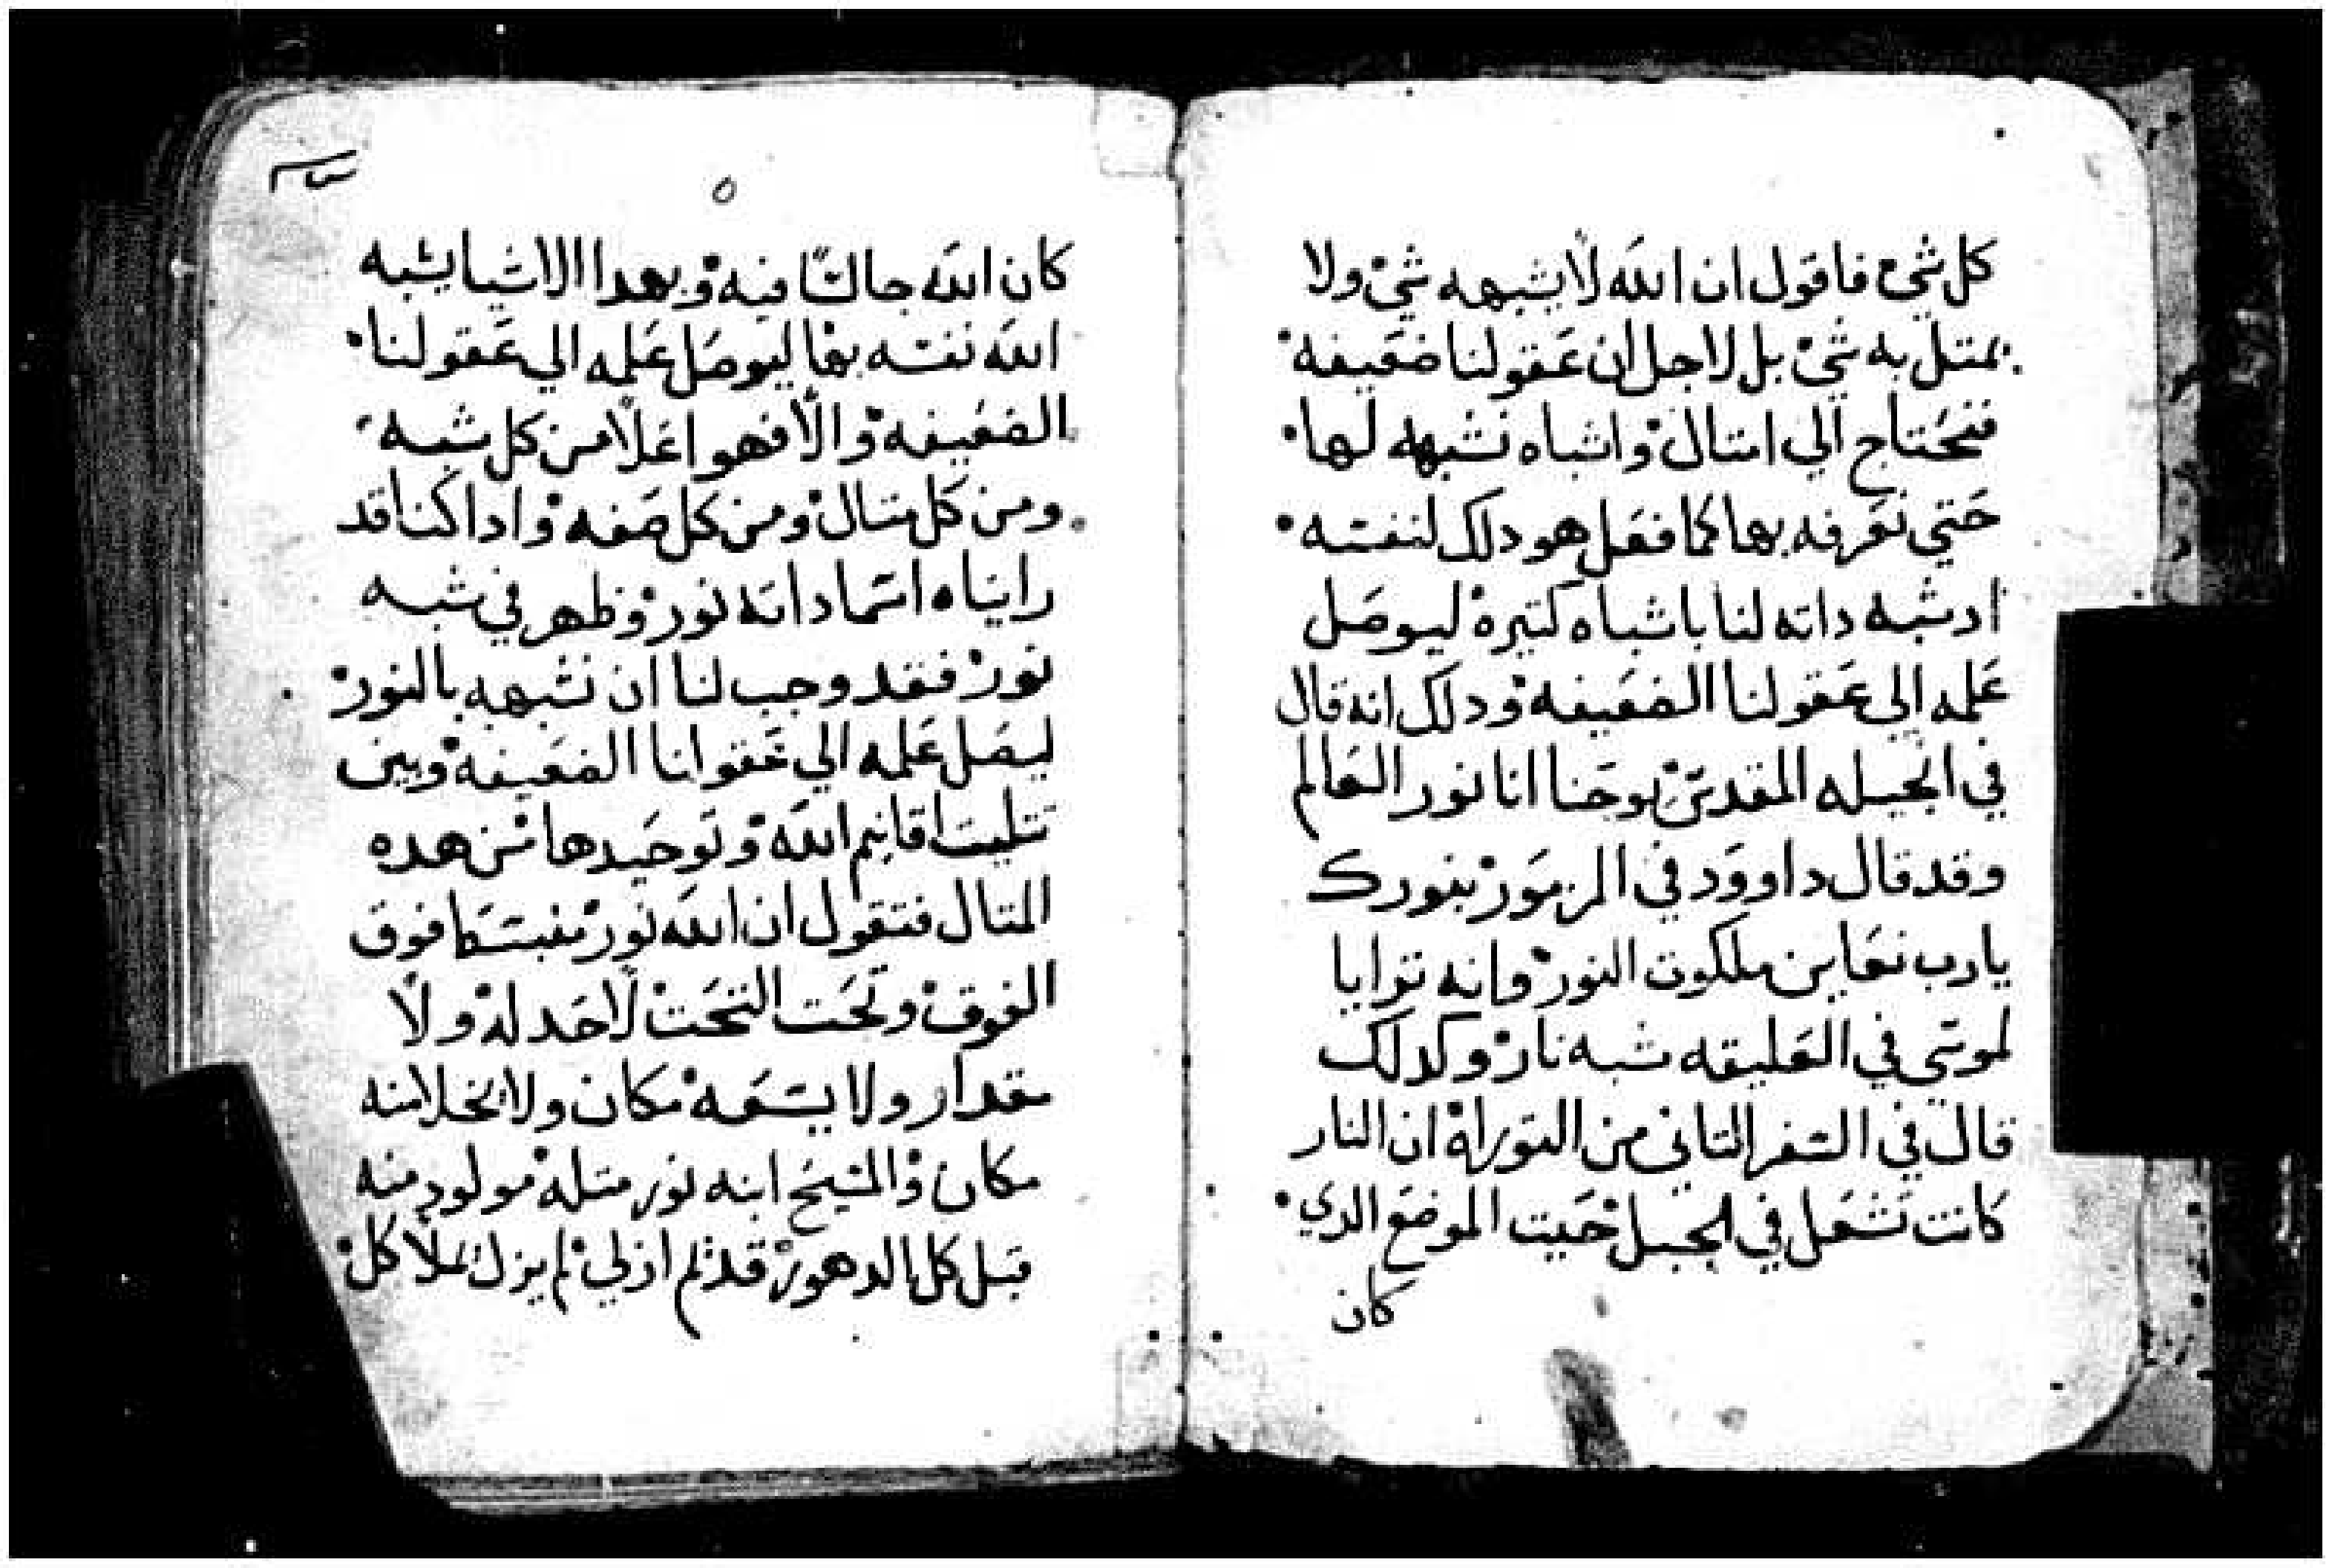 كل شي فاقول ان الله لا يشبهه شي ولا
يمتل به شي بل لاجل ان عقولنا ضعيفه
فنحتاج الي امتال واشباه نشبهه لها
حتي نعرفه بها كما فعل هو دلك لنفسه
اد شبه داته لنا باشباه كتيره ليوصل
علمه الي عقولنا الضعيفه ودلك انه قال
في انجيله المقدس يوحنا انا نور العالم
وقد قال داوود في المزمور بنورك
يارب نعاين ملكوت النور وانه تزايا
لموسي في العليقه شبه نار وكدلك
قال في السفر التاني من التوراه ان النار
كانت تشعل في الجبل حيت الموضع الدي
كان
٥
كان الله جالسًا فيه وبهدا الاشيا يشبه
الله نفسه بها ليوصل علمه الي عقولنا
الضعيفه والا فهو اعلا من كل شبه
ومن كل متال ومن كل صفه وادا كنا قد
رايناه اسما داته نور وظهر في شبه
نور فقد وجب لنا ان نشبهه بالنور
ليصل علمه الي عقولنا الضعيفه ويبن
تتليت اقانيم الله وتوحيدها من هده
المتال فنقول ان الله نور منبسط فوق
الفوق وتحت التحت لا حد له ولا
مقدار ولا يسعه مكان ولا يخلا منه
مكان والمسيح ابنه نور متله مولود منه
قبل كل الدهور قديم ازلي لم يزل يملا كل